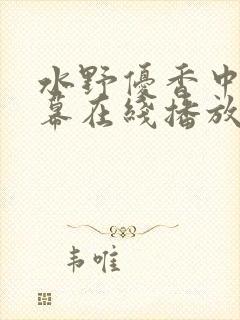 水野優香中
幕在綫播放
韦唯